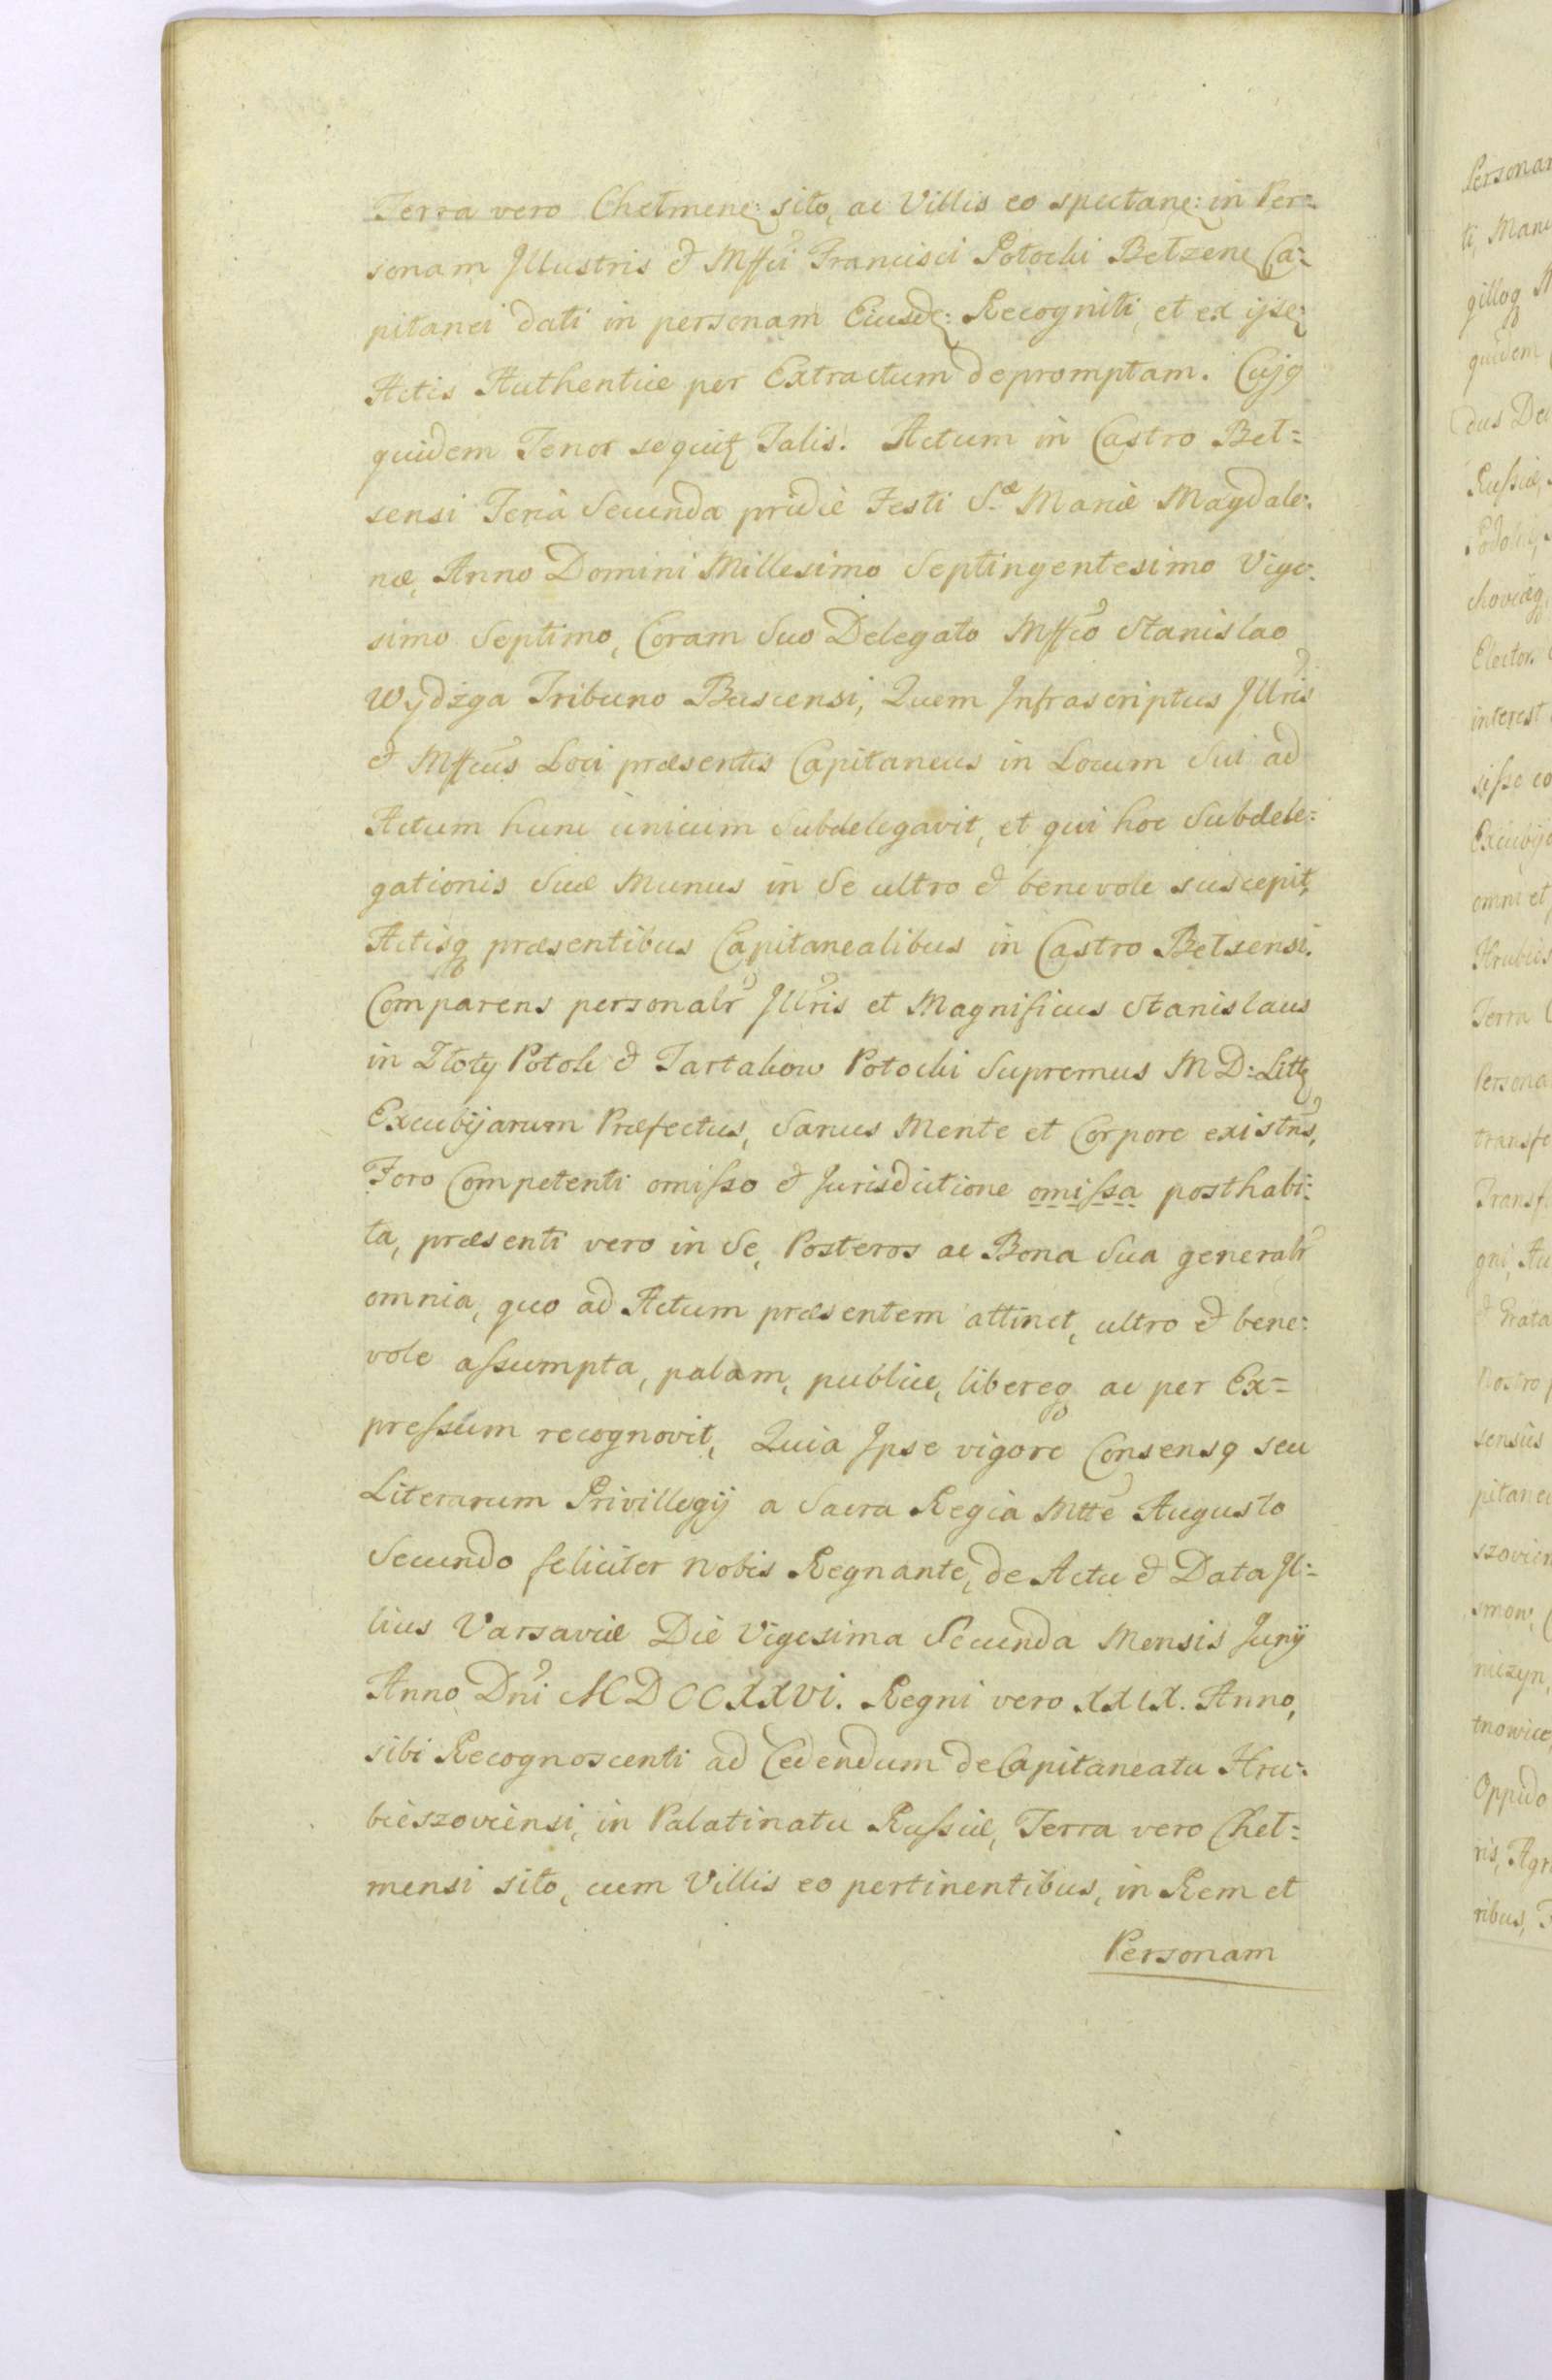 Terra vero Chełmenę: sito, ac Villis eo spectanę: in Per=
sonam Jllustris & Mffci Francisci Potocki Bełzenę Ca=
pitanei dati in personam Eiusdę: Recogniti, et ex ijsę
Actis Authentice per Extractum depromptam. Cujq
quidem Tenor sequit Talis. Actum in Castro Beł=
sensi Feria Secunda pridie Festi S.æ Mariæ Magdale=
næ, Anno Domini Millesimo Septingentesimo Vige=
simo Septimo, Coram Suo Delegato Mffco Stanislao
Wydżga Tribuno Buscensi, Quem Jnfrascriptus Jllris
& Mffcus Loci præsentis Capitaneus in Locum Sui ad
Actum hunc unicum Subdelegavit, et qui hoc Subdele=
gationis Suæ Munus in Se ultro & benevole suscepit,
Actisq præsentibus Capitanealibus in Castro Bełsensi.
Comparens personalr Jllris et Magnificus Stanislaus
in Złoty Potok & Tartakow Potocki Supremus M D: Litt
Excubijarum Præfectus, Sanus Mente et Corpore existns,
Foro Competenti omisso & Jurisdictione omissa posthabi=
ta, præsenti vero in Se, Posteros ac Bona Sua generalr
omnia, quo ad Actum præsentem attinet, ultro & bene=
vole assumpta, palam, publice, libereq ac per Ex=
pressum recognovit, Quia Jpse vigore Consensq seu
Literarum Privillegij a Sacra Regia Mtte Augusto
Secundo feliciter Nobis Regnante, de Actu & Data Jl=
lius Varsaviæ Die Vigesima Secunda Mensis Junij
Anno Dni MDCCXXVI. Regni vero XXIX. Anno,
sibi Recognoscenti ad Cedendum de Capitaneatu Hru=
bieszoviensi, in Palatinatu Russiæ, Terra vero Cheł=
mensi sito, cum Villis eo pertinentibus, in Rem et
Personam
ti, Manu
quidem
Russiæ,
Elector.
interest
sisse co
omni et
Terra
Persona
transfe
Transf
Nostro
sensus
pitanei
Oppido
ribus,